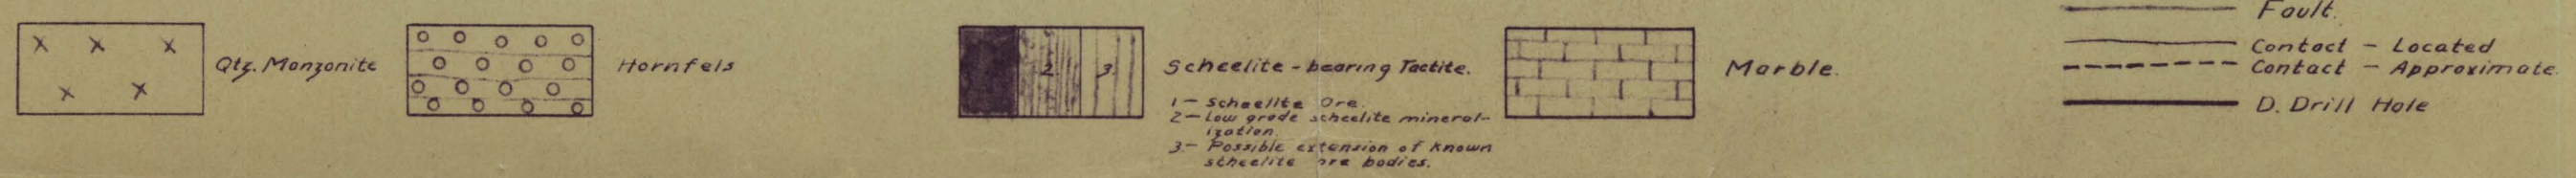 Qtz. Monzonite
Hornfels
2
3
Scheelite - bearing Tactite.
1 - Scheelite Ore.
2 - Low grade scheelite mineral-
ization.
3 - Possible extension of known
scheelite ore bodies.
Marble.
Fault.
Contact - Located
Contact - Approximate.
D. Drill Hole